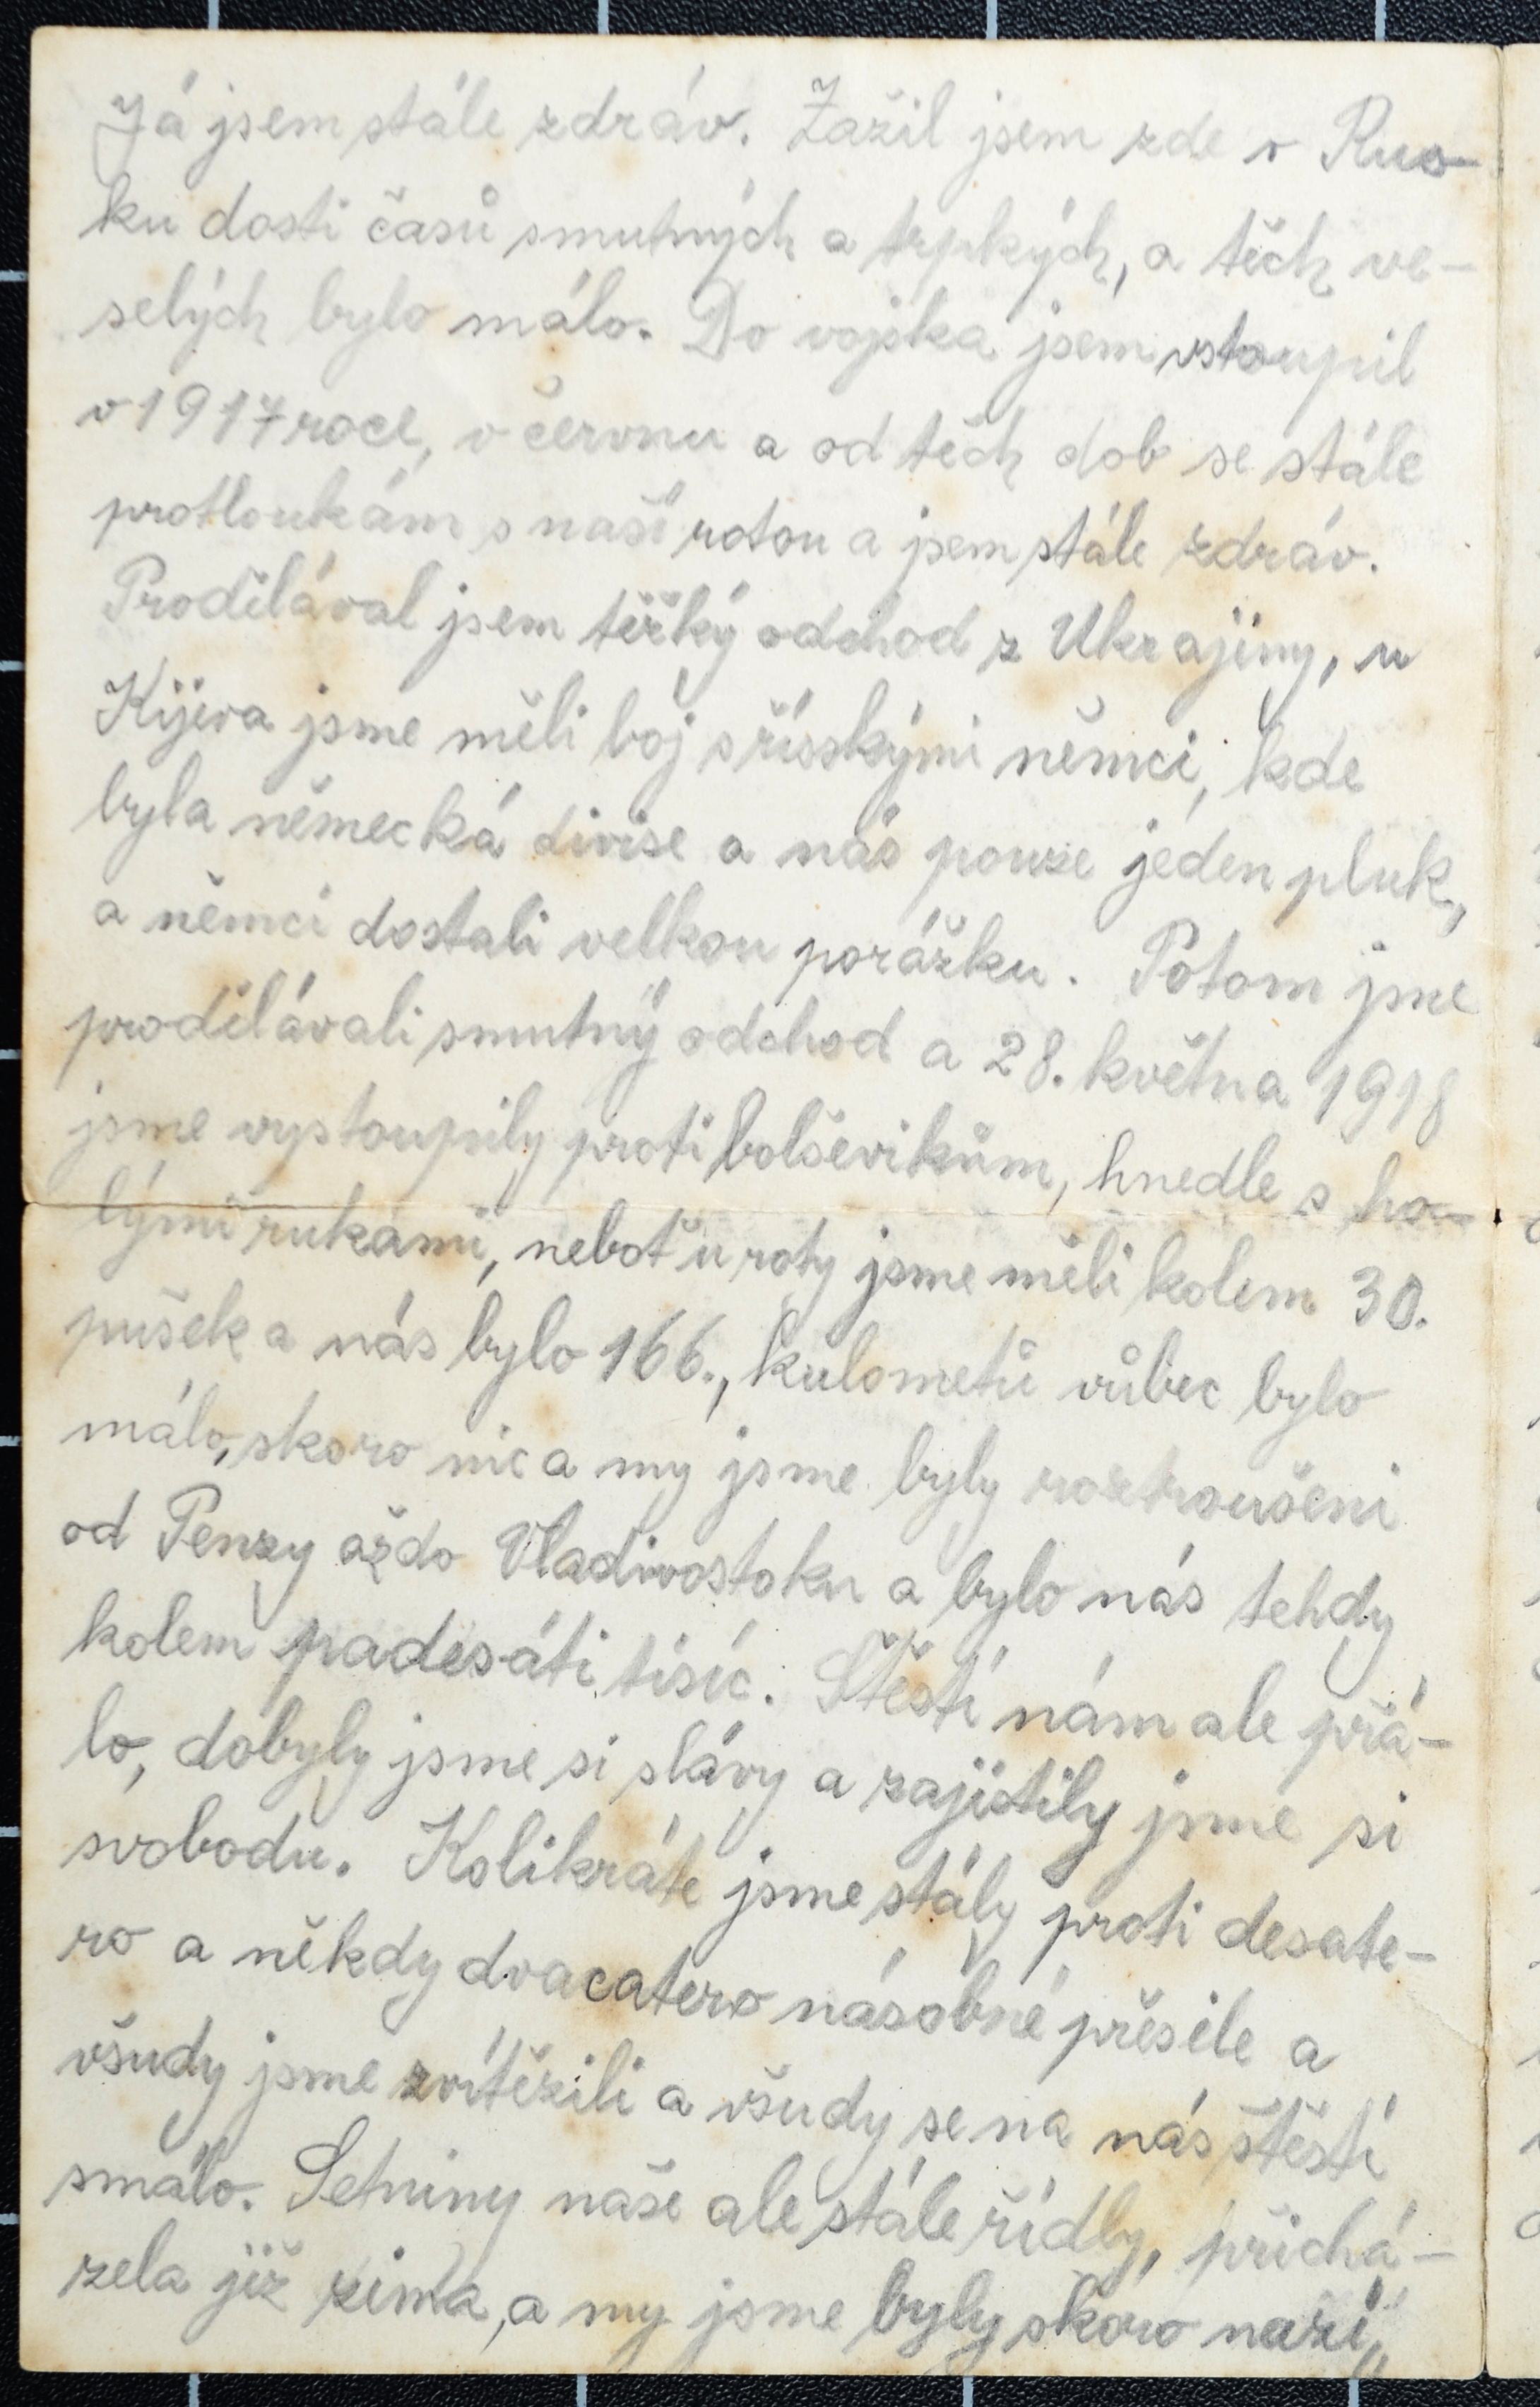 Já jsem stále zdráv. Zažil jsem zde v Rus-
ku dosti časů smutných a trpkých, a těch ve-
selých bylo málo. Do vojska jsem vstoupil
v 1917 roce, v červnu a od těch dob se stále
protloukám s naší rotou a jsem stále zdráv.
Prodělával jsem těžký odchod z Ukrajiny, u
Kijeva jsme měli boj s říšskými němci, kde
byla německá divise a nás pouze jeden pluk,
a němci dostali velkou porážku. Potom jsme
prodělávali smutný odchod a 28. května 1918
jsme vystoupily proti bolševikům, hnedle s ho-
lými rukami, neboť u roty jsme měli kolem 30.
pušek a nás bylo 166., kulometů vůbec bylo
málo, skoro nic a my jsme byly roztroušeni
od Penzy až do Vladivostoku a bylo nás tehdy
kolem padesáti tisíc. Štěstí nám ale přá-
lo, dobyly jsme si slávy a zajistily jsme si
svobodu. Kolikráte jsme stály proti desate-
ro a někdy dvacatero násobné přesile a
všudy jsme zvítězili a všudy se na nás štěstí
smálo. Setniny naše ale stále řídly, přichá-
zela již zima, a my jsme byly skoro nazí,